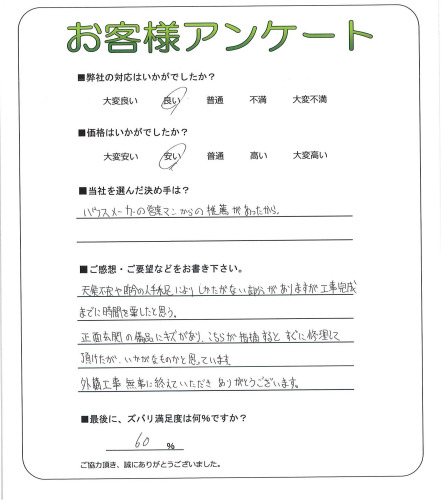 お客様アンケート
■弊社の対応はいかがでしたか？
大変良い 良い 普通 不満 大変不満
■価格はいかがでしたか？
大変安い 安い 普通 高い 大変高い
■当社を選んだ決め手は？
ハウスメーカーの営業マンからの推薦があったから。
■ご感想・ご要望などをお書き下さい。
天候不良や昨今の人手不足によりしかたがない部分がありますが工事完成
までに時間を要したと思う。
正面玄関の備品にキズがあり、こちらが指摘するとすぐに修理して
頂けたが、いかがなものかと思っています
外構工事無事に終えていただきありがとうございます。
■最後に、ズバリ満足度は何％ですか？
60 %
ご協力頂き、誠にありがとうございました。